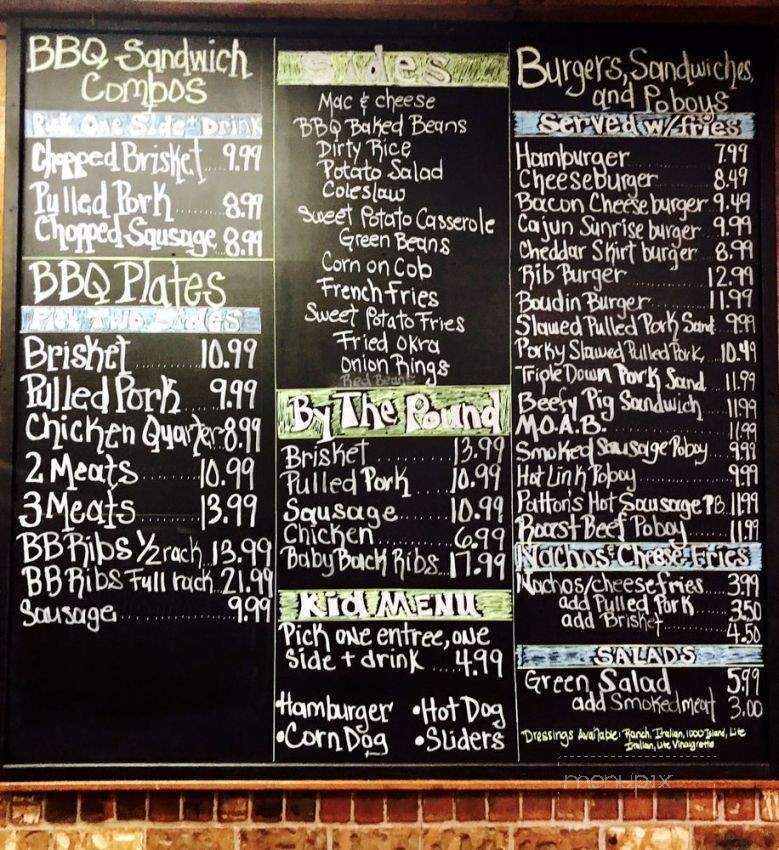 BBQ Sandwich
Combos
Pick One Side + Drink
Chopped Brisket...9.99
Pulled Pork.......8.99
Chopped Sausage.8.99
BBQ Plates
Pick Two Sides
Brisket........10.99
Pulled Pork....9.99
Chicken Quarter 8.99
2 Meats........10.99
3 Meats.......13.99
BB Ribs 1/2 rack..13.99
BB Ribs Full rack..21.99
Sausage..............9.99
Sides
Mac & cheese
BBQ Baked Beans
Dirty Rice
Potato Salad
Coleslaw
Sweet Potato Casserole
Green Beans
Corn on Cob
French fries
Sweet Potato Fries
Fried Okra
Onion Rings
Red Beans
By The Pound
Brisket...........13.99
Pulled Pork....10.99
Sausage..........10.99
Chicken...........6.99
Baby Back Ribs...17.99
Kid MENU
Pick one entree, one
Side + drink....4.99
•Hamburger •Hot Dog
•Corn Dog •Sliders
Burgers, Sandwiches,
and Poboys
Served w/fries
Hamburger............7.99
Cheeseburger.......8.49
Bacon Cheeseburger 9.49
Cajun Sunrise burger 9.99
Cheddar Skirt burger 8.99
Rib Burger...........12.99
Boudin Burger.......11.99
Slawed Pulled Pork Sand. 9.99
Porky Slawed Pulled Pork, ...10.49
Triple Down Pork Sand...11.99
Beefy Pig Sandwich....11.99
M.O.A.B...................11.99
Smoked Sausage Poboy...9.99
Hot Link Poboy............9.99
Patton's Hot Sausage P.B. 11.99
Roast Beef Poboy......11.99
Nachos & Cheese Fries
Nachos/cheese fries....3.99
add Pulled Pork.....3.50
add Brisket..........4.50
SALADS
Green Salad 5.99
add Smoked meat 3.00
Dressings Available: Ranch, Italian, 1000 Island, Lite
Italian, Lite Vinaigrette
menupix